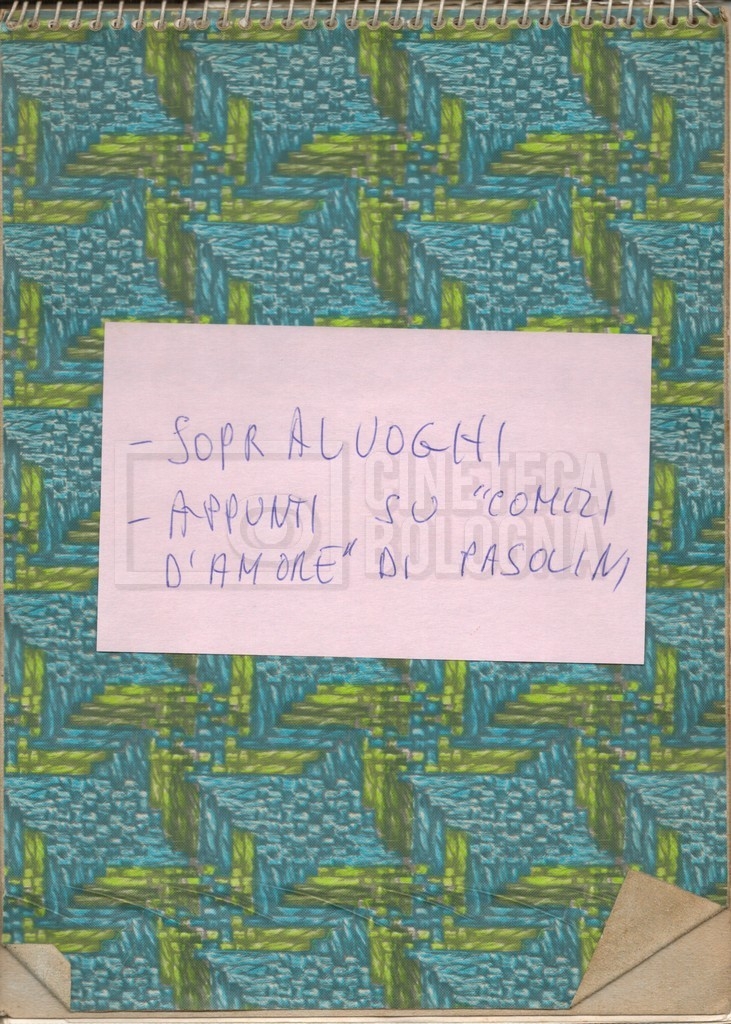 - SOPRALUOGHI
- APPUNTI SU "COMIZI
D'AMORE" DI PASOLINI
CINETECA
BOLOGNA